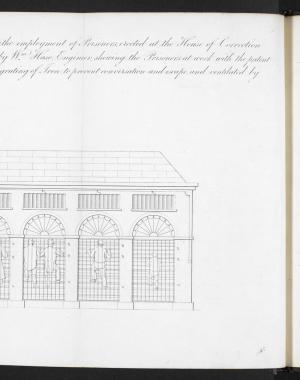 the employment of Persons, erected at the House of Correction
by Wm. Hase, Engineer, shewing the Prisoners at work with the patent
grating of Iron to prevent conversation and escape, and ventilated by